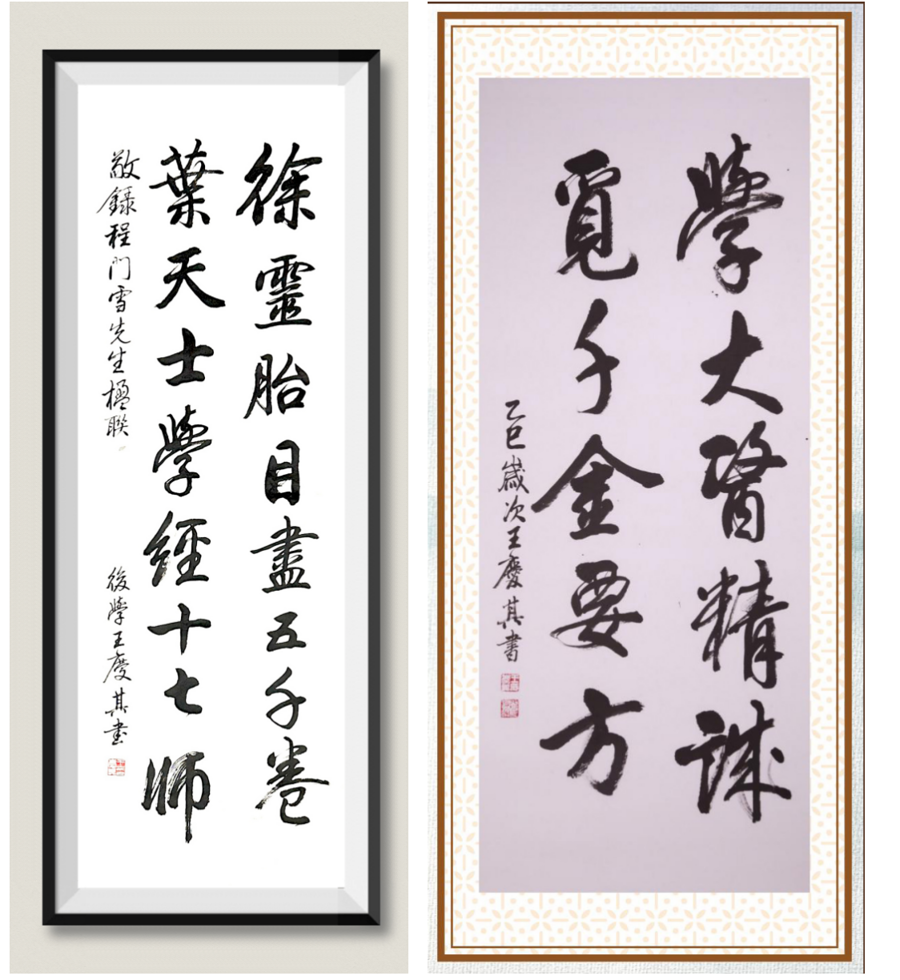 徐靈胎目盡五千卷
葉天士學經十七師
敬録程门雪先生楹聯
後學王慶其書
學大醫精誠
覓千金要方
乙巳歲次王慶其書